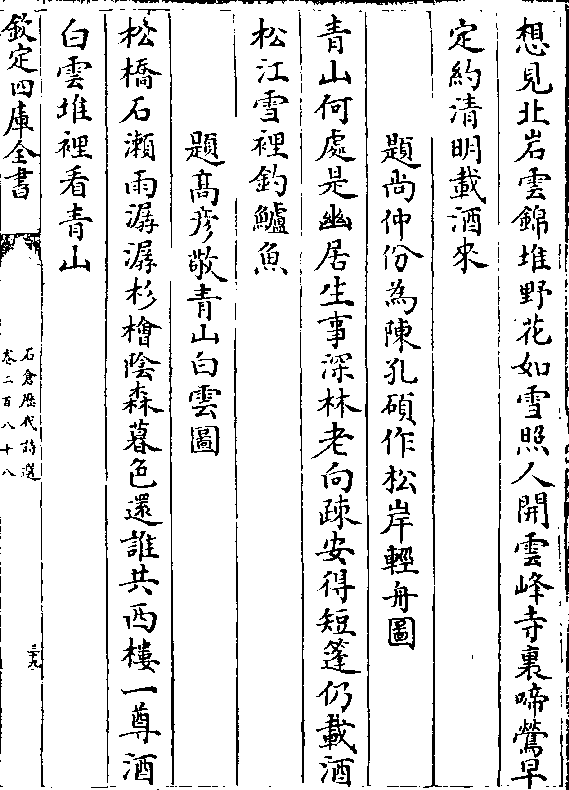 想見北岩雲錦堆野花如雪照人開雲峰寺裏啼鶯早
定約清明載酒來
題尚仲份為陳孔碩作松岸輕舟圖
青山何處是幽居生事深林老向疎安得短篷仍載酒
松江雪裡釣鱸魚
題髙彦敬青山白雲圖
松橋石瀬雨潺潺杉檜陰森暮色還誰共西樓一尊酒
白雲堆裡看青山
欽定四庫全書
石倉歴代詩選
卷二百八十八
三十九